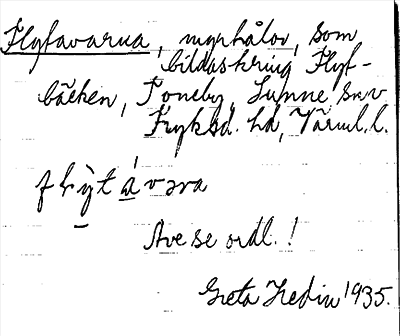 Flyfavarna, myrhålor, som
bildas kring Flyf-
bäcken, Toneby, Sunne snv
Fryksd. hd, Värml. l.
flỳtávəra
Ave se ordl.!
Greta Hedin 1935.